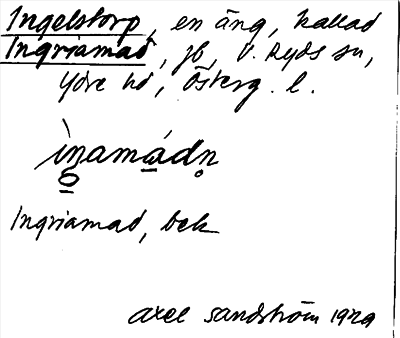 Ingelstorp, en äng, kallad
Ingriamad, jb, V. Ryds sn,
Ydre hd, Österg. l.
Ingriamad, bek
Axel Sandström 1929